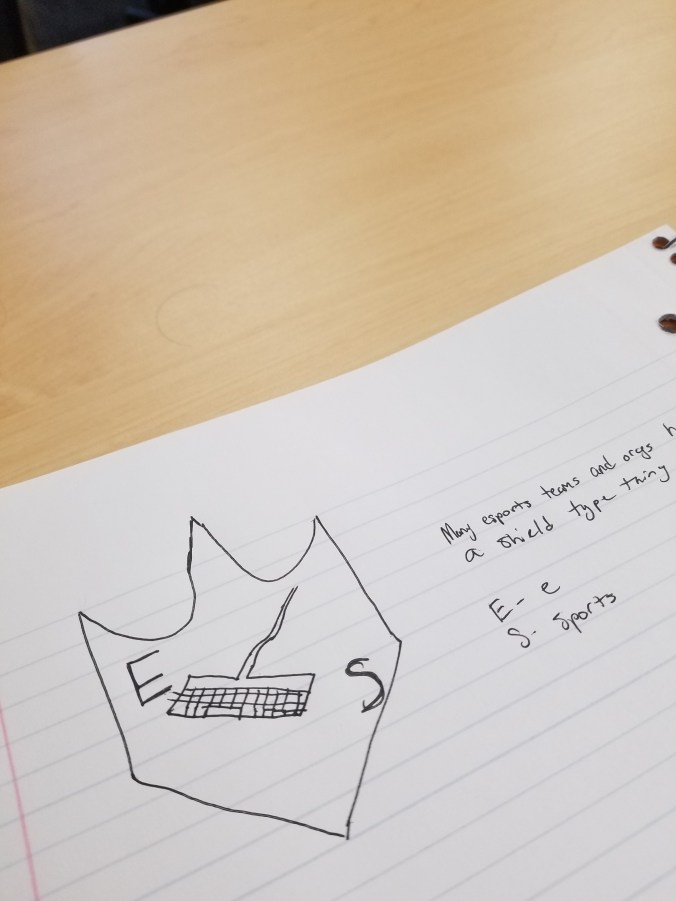 E S
Many esports teams and orgs
a shield type thing
E- e
S- sports